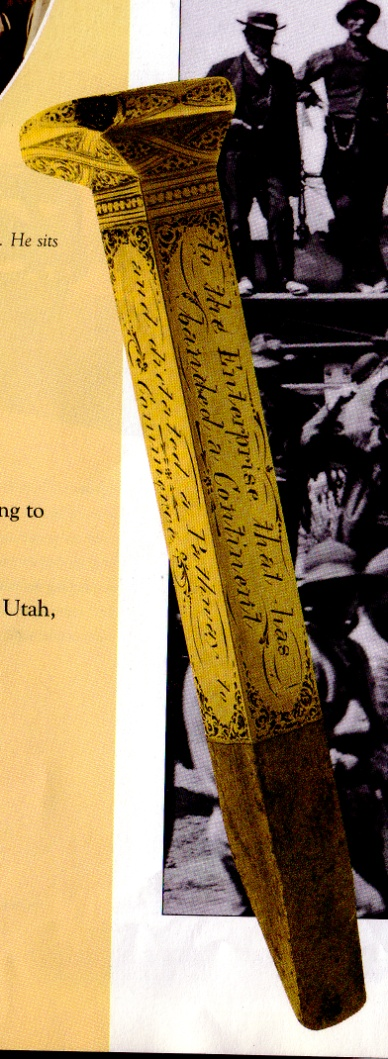 . He sits
ng to
Utah,
to the Enterprise that has
banded a Continent
and dictated a Pathway to
Commerce.